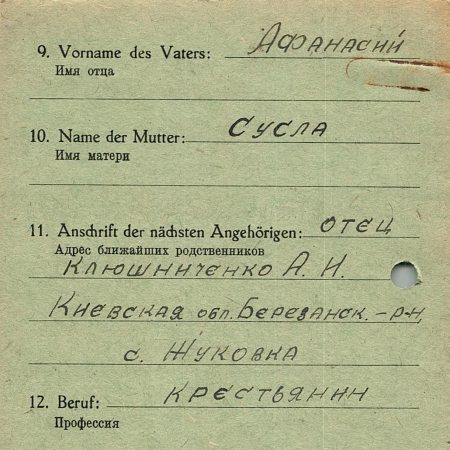 9. Vorname des Vaters: Афанасий
Имя отца
10. Name der Mutter: Сусла
Имя матери
11. Anschrift der nächsten Angehörigen: отец
Адрес ближайших родственников
Клюшниченко А. И.
Киевская обл. Березанск. - р-н,
с. Жуковка
12. Beruf: крестьянин
Профессия